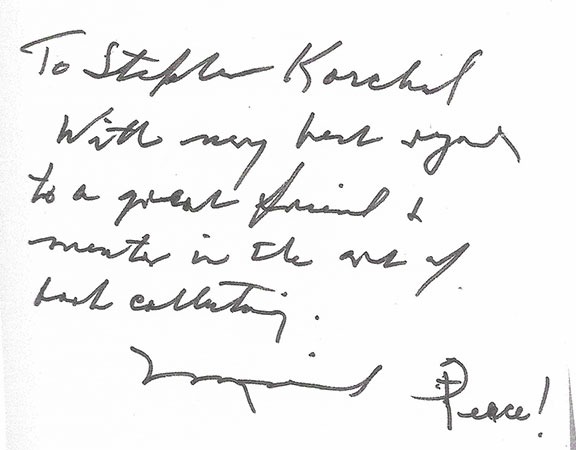 To Stephen Korchil
With very best regards
to a great friend &
mentor in the art of
book collecting.
Peace!